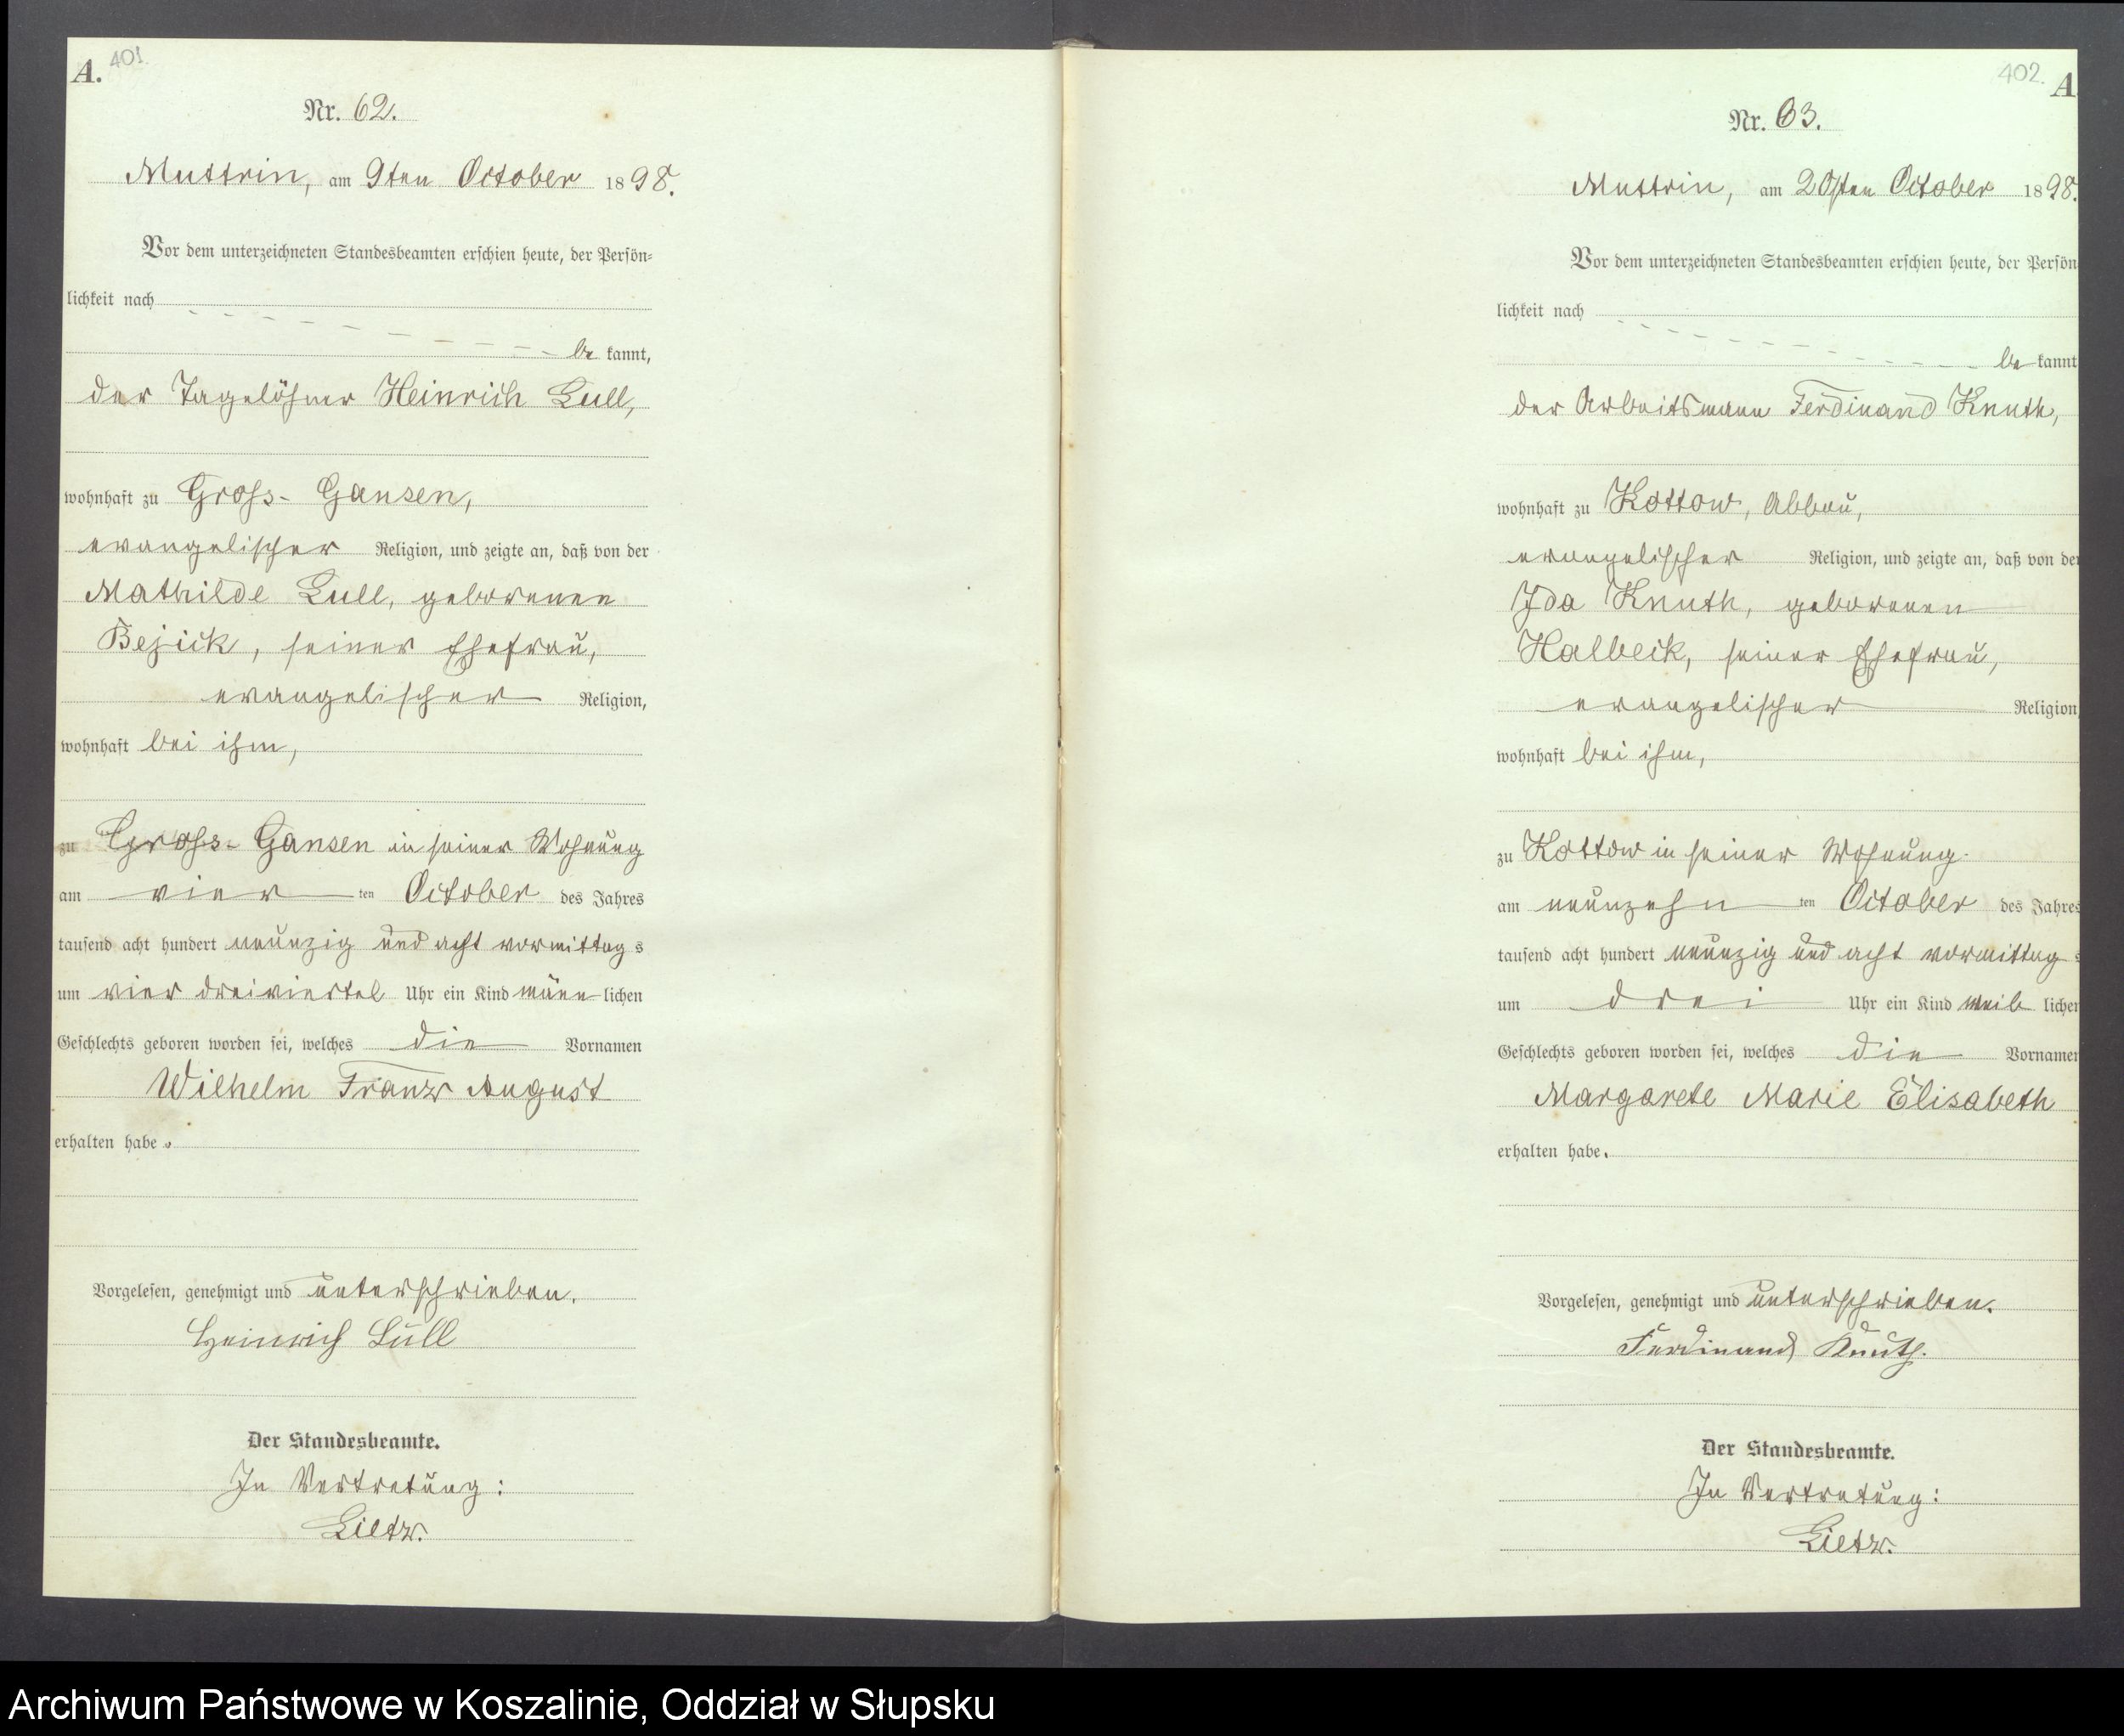 A. 401.
Nr. 62.
Muttrin, am 9ten October 1898.
Vor dem unterzeichneten Standesbeamten erschien heute, der Persön=
lichkeit nach
be kannt,
der Tagelöhner Heinrich Lull,
wohnhaft zu Gross-Gansen,
evangelischer Religion, und zeigte an, daß von der
Mathilde Lull, geborenen
Bejick, seiner Ehefrau,
evangelischer Religion,
wohnhaft bei ihm,
zu Gross-Gansen in seiner Wohnung
am vier ten October des Jahres
tausend acht hundert neunzig und acht vormittag s
um vier dreiviertel Uhr ein Kind männ lichen
Geschlechts geboren worden sei, welches die Vornamen
Wilhelm Franz August
erhalten habe.
Vorgelesen, genehmigt und unterschrieben.
Heinrich Lull
Der Standesbeamte.
In Vertretung:
Lietz.
402. A
Nr. 63.
Muttrin, am 20sten October 1898.
Vor dem unterzeichneten Standesbeamten erschien heute, der Persön
lichkeit nach
be kannt
der Arbeitsmann Ferdinand Knuth,
wohnhaft zu Kottow, Abbau,
evangelischer Religion, und zeigte an, daß von der
Ida Knuth, geborenen
Halbeck, seiner Ehefrau,
evangelischer Religion,
wohnhaft bei ihm,
zu Kottow in seiner Wohnung
am neunzehn ten October des Jahres
tausend acht hundert neunzig und acht vormittag s
um drei Uhr ein Kind weib lichen
Geschlechts geboren worden sei, welches die Vornamen
Margarete Marie Elisabeth
erhalten habe.
Vorgelesen, genehmigt und unterschrieben.
Ferdinand Knuth.
Der Standesbeamte.
In Vertretung:
Lietz.
Archiwum Państwowe w Koszalinie, Oddział w Słupsku